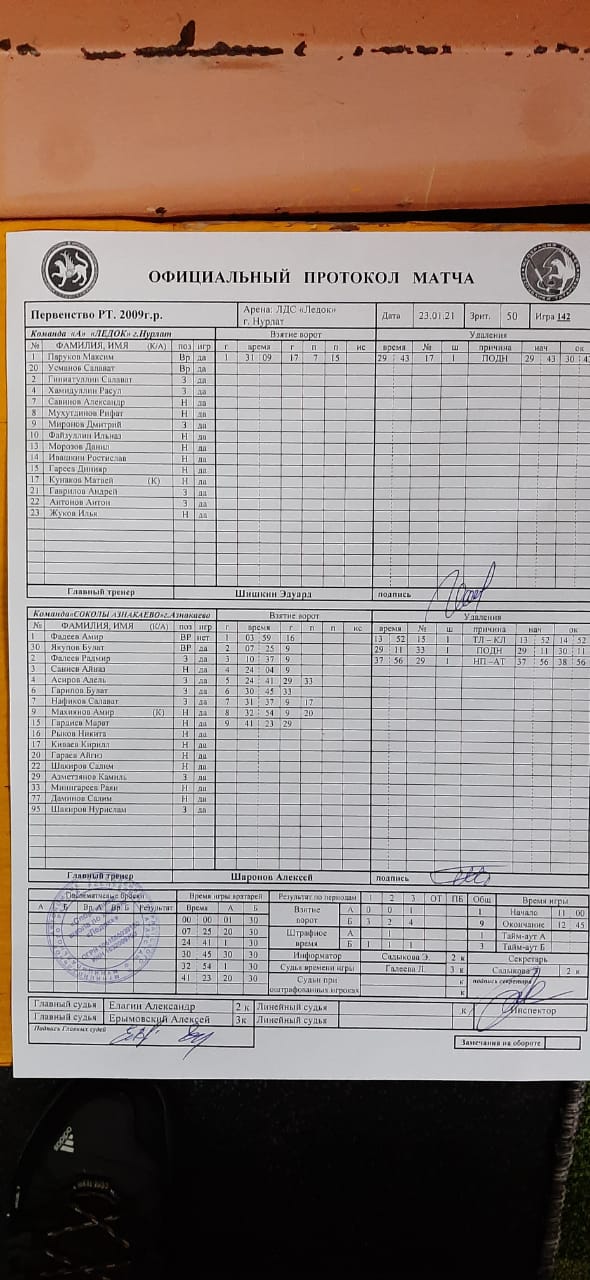 ОФИЦИАЛЬНЫЙ ПРОТОКОЛ МАТЧА
Первенство РТ. 2009г.р. Арена: ЛДС «Ледок» г. Нурлат Дата 23.01.21 Зрит. 50 Игра 142
Команда «А» «ЛЕДОК» г.Нурлат Взятие ворот Удаления
№ ФАМИЛИЯ, ИМЯ (К/А) поз игр г время г п п ис время № ш причина нач ок
1 Паруков Максим Вр да 1 31 09 17 7 15 29 43 17 1 ПОДН 29 43 30
20 Усманов Салават Вр да
2 Гиниатуллин Салават З да
4 Хамидуллин Расул З да
7 Савинов Александр Н да
8 Мухутдинов Рифат Н да
9 Миронов Дмитрий З да
10 Файзуллин Ильназ Н да
13 Морозов Данил Н да
14 Ивашкин Ростислав Н да
15 Гареев Динияр Н да
17 Кунаков Матвей (К) Н да
21 Гаврилов Андрей З да
22 Антонов Антон З да
23 Жуков Илья Н да
Главный тренер Шишкин Эдуард подпись
Команда«СОКОЛЫ АЗНАКАЕВО»г.Азнакаево Взятие ворот Удаления
№ ФАМИЛИЯ, ИМЯ (К/А) поз игр г время г п п ис время № ш причина нач ок
1 Фадеев Амир ВР нет 1 03 59 16 13 52 15 1 ТЛ - КЛ 13 52 14 52
30 Якупов Булат ВР да 2 07 25 9 29 11 33 1 ПОДН 29 11 30 11
2 Фалеев Радмир З да 3 10 37 9 37 56 29 1 НП -АТ 37 56 38 56
3 Саниев Айназ Н да 4 24 04 9
4 Асиров Адель З да 5 24 41 29 33
6 Гарипов Булат З да 6 30 45 33
7 Нафиков Салават З да 7 31 37 9 17
9 Махиянов Амир (К) Н да 8 32 54 9 20
15 Гардиев Марат Н да 9 41 23 29
16 Рыков Никита Н да
17 Киваев Кирилл Н да
20 Гараев Айгиз Н да
22 Шакиров Салим Н да
29 Ахметзянов Камиль З да
33 Минигареев Раян Н да
77 Даминов Салим Н да
95 Шакиров Нурислам З да
Главный тренер Шаронов Алексей подпись
Послематчевые броски Время игры вратарей Результат по периодам 1 2 3 ОТ ПБ Общ Время игры
А Б Вр. А Вр. Б Результат Время А Б Взятие ворот А 0 0 1 1 Начало 11 00
00 00 01 30 Б 3 2 4 9 Окончание 12 45
07 25 20 30 Штрафное время А 1 1 Тайм-аут А
24 41 1 30 Б 1 1 1 3 Тайм-аут Б
30 45 30 30 Информатор Садыкова Э. 2 к Секретарь
32 54 1 30 Судья времени игры Галеева Л. 3 к Садыкова 2 к
41 23 20 30 Судьи при оштрафованных игроках к к подпись секретаря
Главный судья Елагин Александр 2 к Линейный судья к Инспектор
Главный судья Ерымовский Алексей 3к Линейный судья
Подпись Главных судей
Замечания на обороте